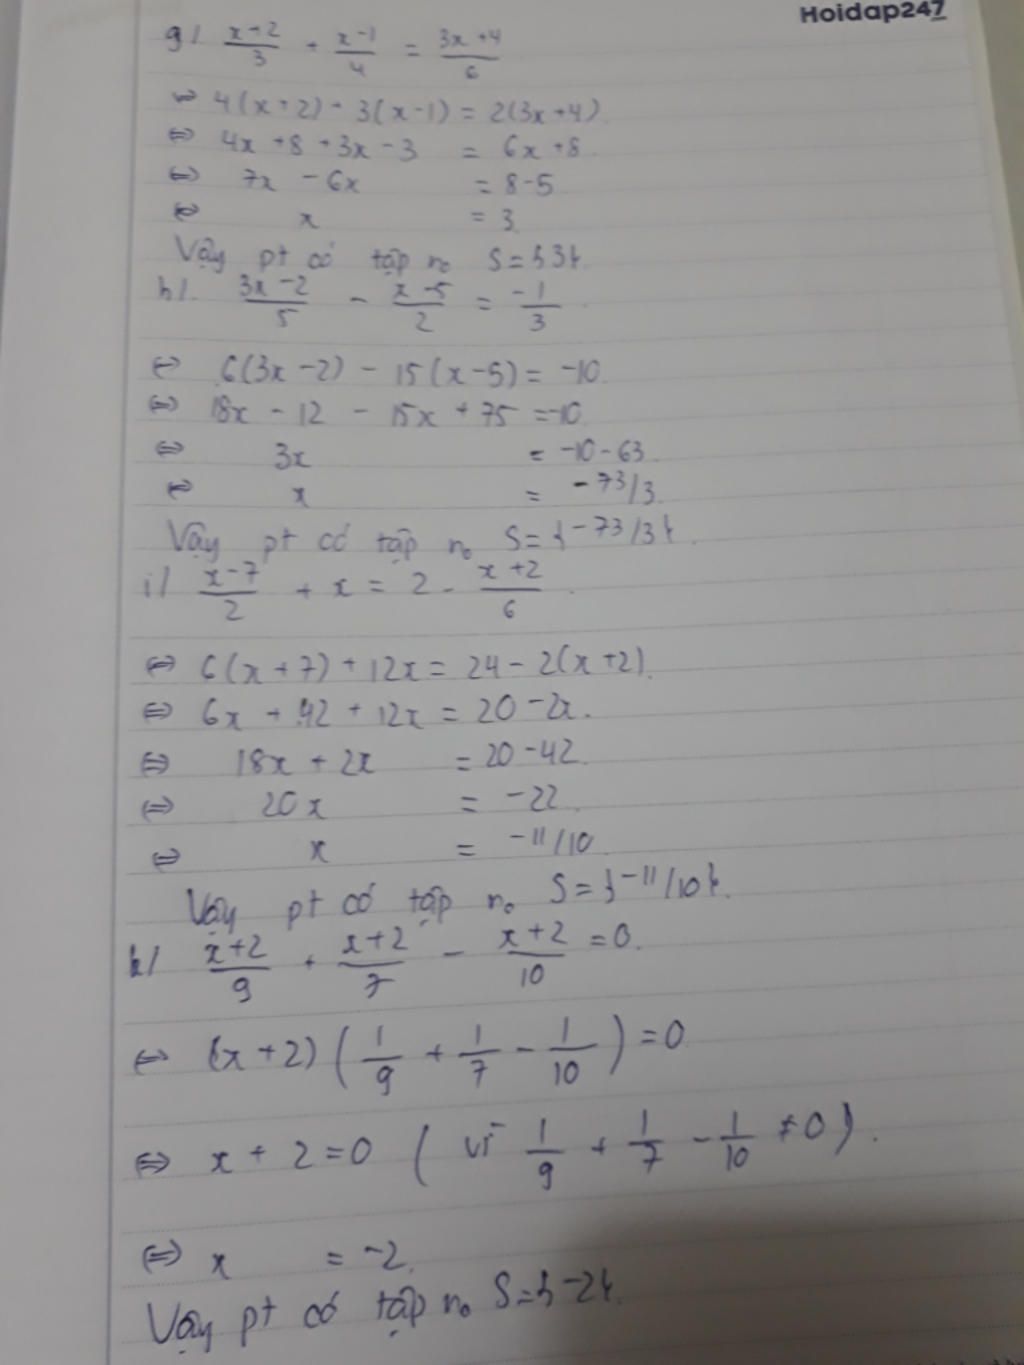 Hoidap247
g/ x+2/3 + x-1/4 = 3x+4/6
⇔ 4(x+2) + 3(x-1) = 2(3x+4)
⇔ 4x +8 +3x - 3 = 6x +8
⇔ 7x - 6x = 8-5
⇔ x = 3
Vậy pt có tập no S={3}
h/. 3x-2/5 - x-5/2 = -1/3
⇔ 6(3x-2) - 15(x-5) = -10.
⇔ 18x - 12 - 15x + 75 = -10
⇔ 3x = -10-63
⇔ x = -73/3
Vậy pt có tập no S={-73/3}
i/ x-7/2 + x = 2 - x+2/6
⇔ 6(x+7) + 12x = 24 - 2(x+2).
⇔ 6x + 42 + 12x = 20 - 2x.
⇔ 18x + 2x = 20-42
⇔ 20x = -22
⇔ x = -11/10
Vậy pt có tập no S={-11/10}.
k/ x+2/9 + x+2/7 - x+2/10 = 0.
⇔ (x+2)(1/9 + 1/7 - 1/10) = 0
⇔ x + 2 = 0 ( vì 1/9 + 1/7 - 1/10 ≠ 0).
⇔ x = -2.
Vậy pt có tập no S={-2}.